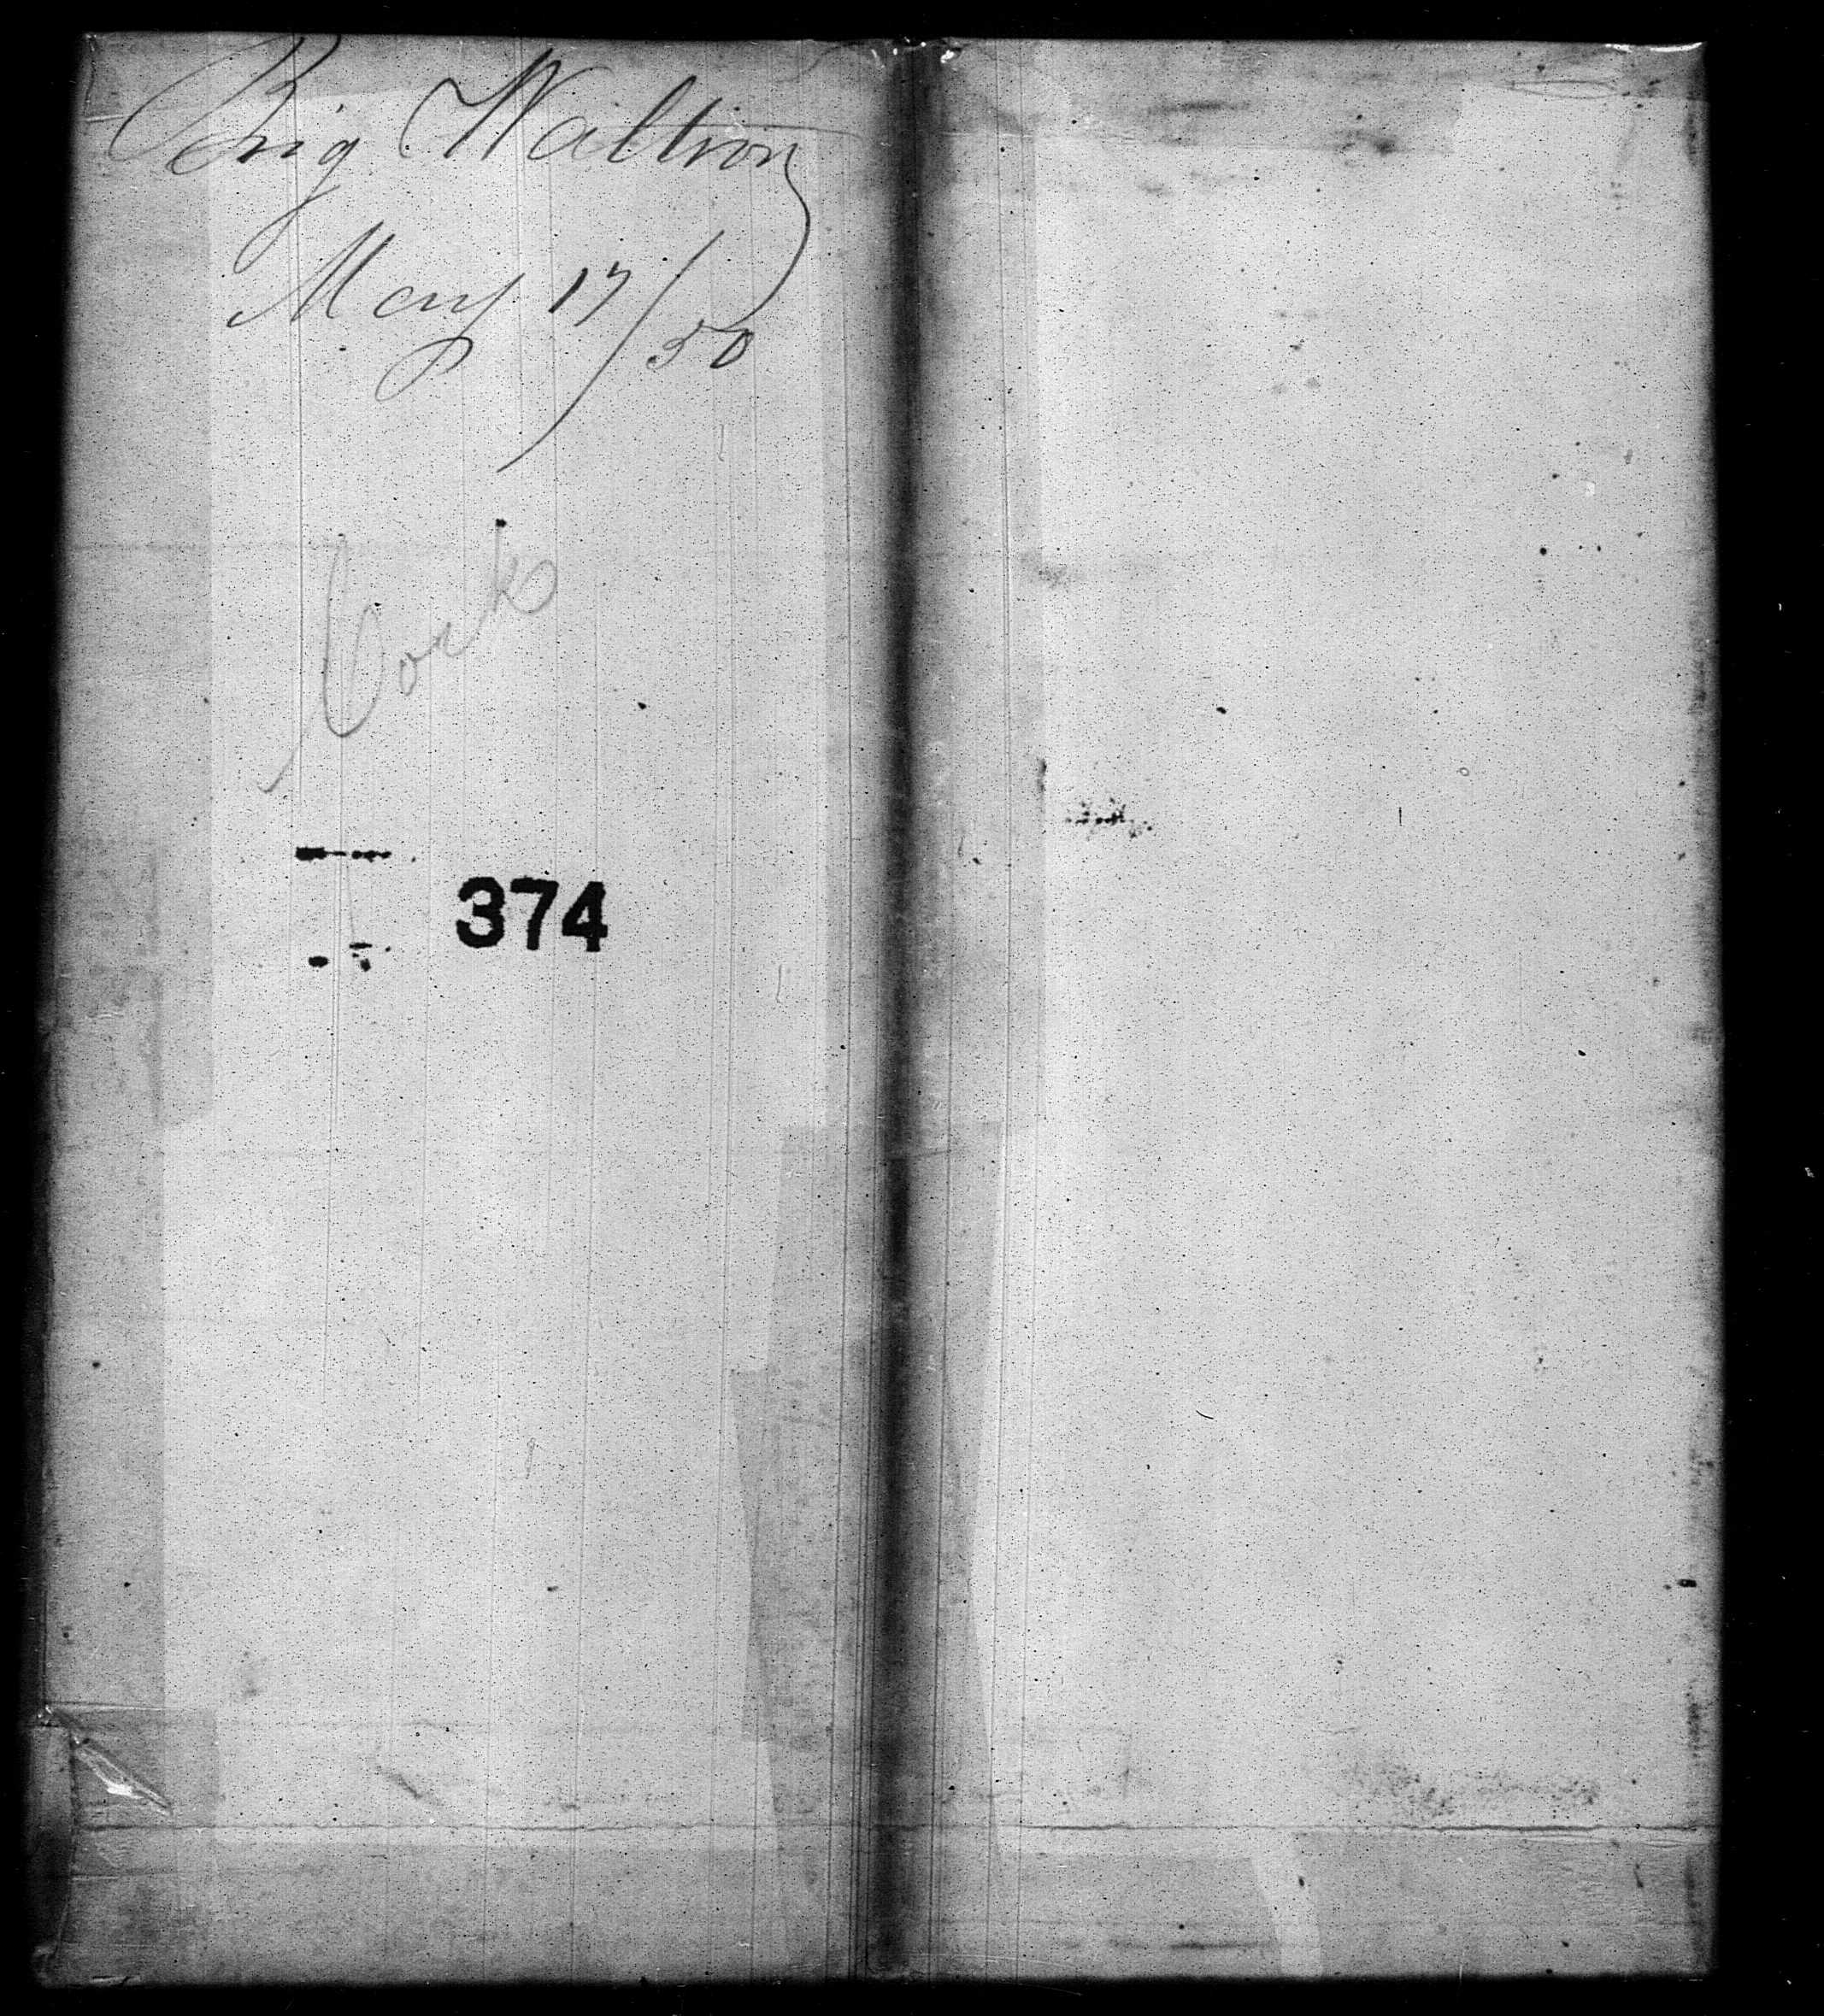 Brig Waltron
May 17/50
Cork
374